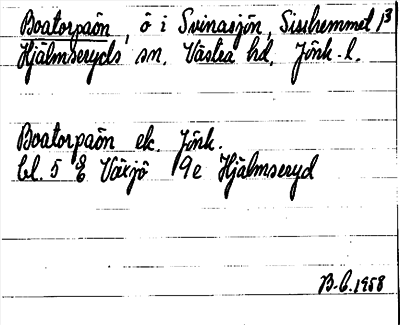 Boatorpaön, ö i Svinasjön, Sisshemmel 1³
Hjälmseryds sn, Västra hd, Jönk. l.
Boatorpaön ek. Jönk.
bl. 5 E Växjö 9e Hjälmseryd
B-G. 1958